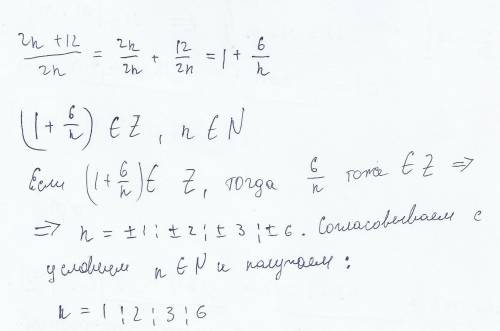 (2n + 12)/2n = 2n/2n + 12/2n = 1 + 6/n
(1 + 6/n) ∈ Z, n ∈ N
Если (1 + 6/n) ∈ Z, тогда 6/n тоже ∈ Z ⇒
⇒ n = ±1; ±2; ±3; ±6. Согласовываем с
условием n ∈ N и получаем:
n = 1; 2; 3; 6